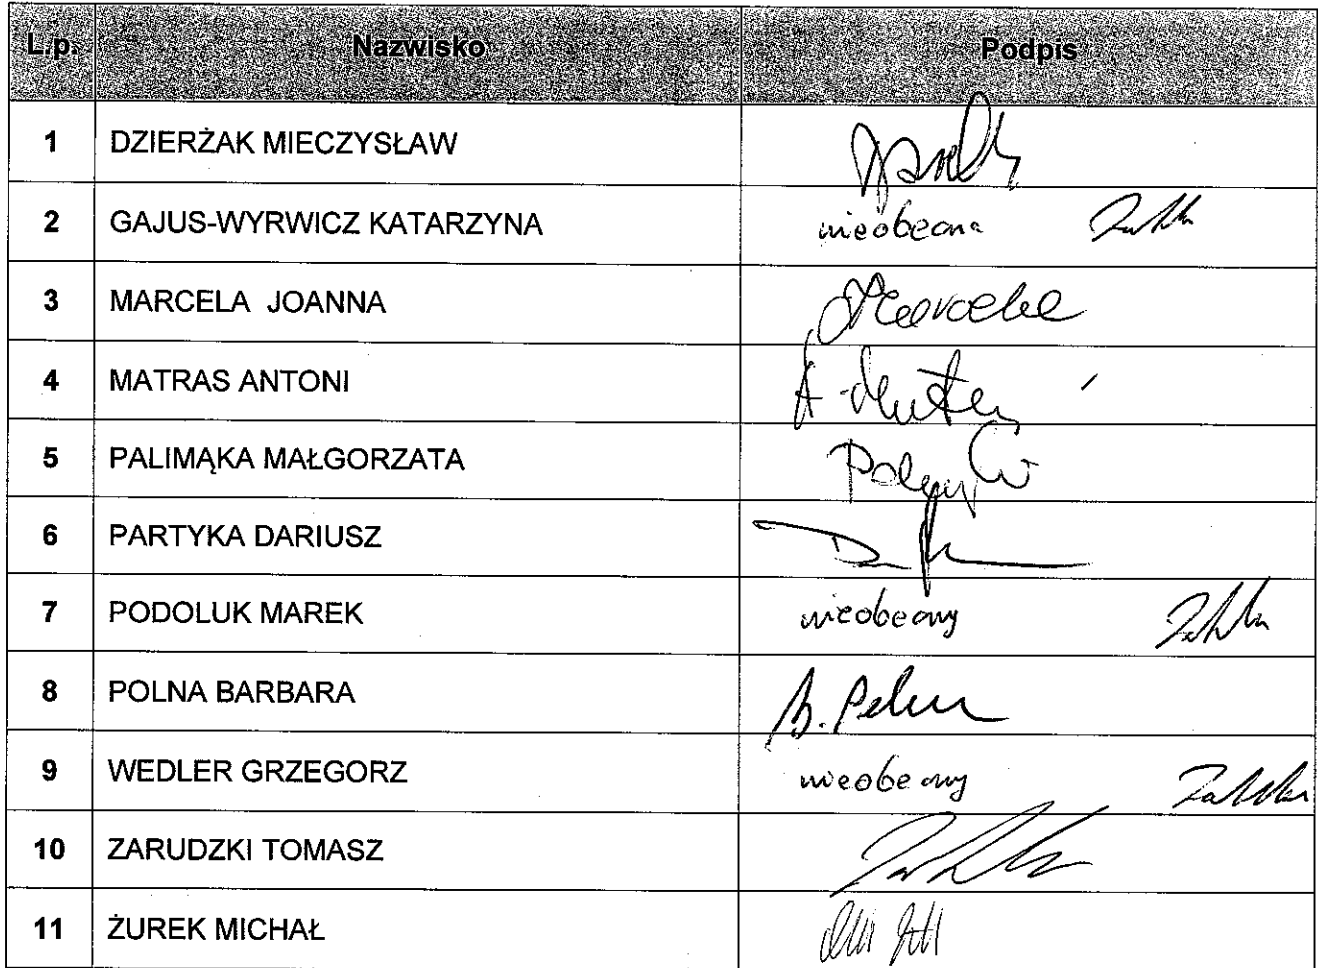 L.p. Nazwisko Podpis
1 DZIERŻAK MIECZYSŁAW
2 GAJUS-WYRWICZ KATARZYNA nieobecna
3 MARCELA JOANNA Marcela
4 MATRAS ANTONI
5 PALIMĄKA MAŁGORZATA
6 PARTYKA DARIUSZ
7 PODOLUK MAREK nieobecny
8 POLNA BARBARA B. Polna
9 WEDLER GRZEGORZ nieobecny
10 ZARUDZKI TOMASZ
11 ŻUREK MICHAŁ